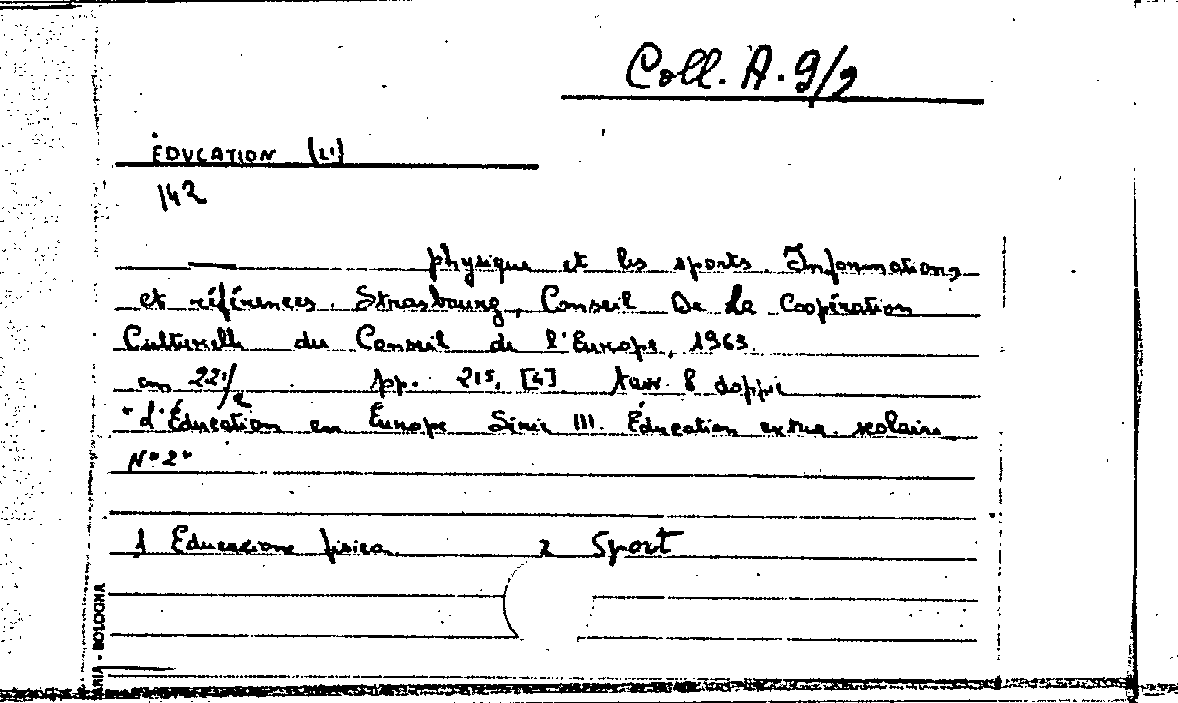 Coll. A. 9/2
ÉDUCATION (L')
142
physique et les sports. Informations
et références. Strasbourg, Conseil De La Coopération
Culturelle du Conseil de l'Europe, 1963.
cm 22 1/2 pp. 215, [4] tav. 8 doppie
"L'Éducation en Europe Série III. Éducation extra scolaire
N° 2"
1 Educazione fisica 2 Sport
ARIA - BOLOGNA